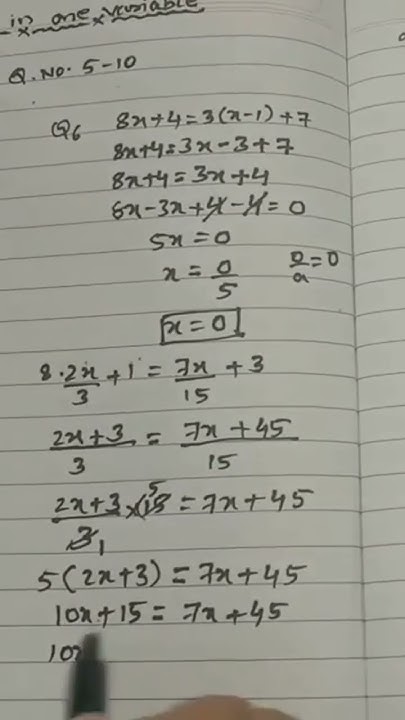 in one variable
Q.No. 5-10
Q6 8x+4=3(x-1)+7
8x+4=3x-3+7
8x+4=3x+4
8x-3x+4-4=0
5x=0
x=0/5 0/a=0
x=0
8. 2x/3+1=7x/15+3
2x+3/3=7x+45/15
2x+3/3×15 5=7x+45
1
5(2x+3)=7x+45
10x+15=7x+45
10x